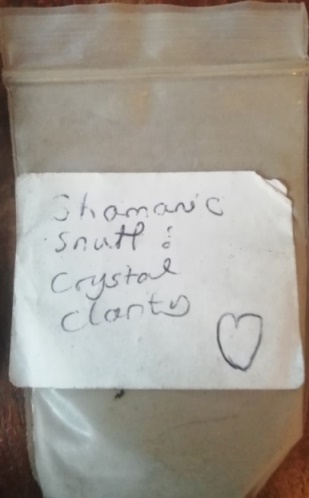 Shamanic
Snuff :
Crystal
Clarity